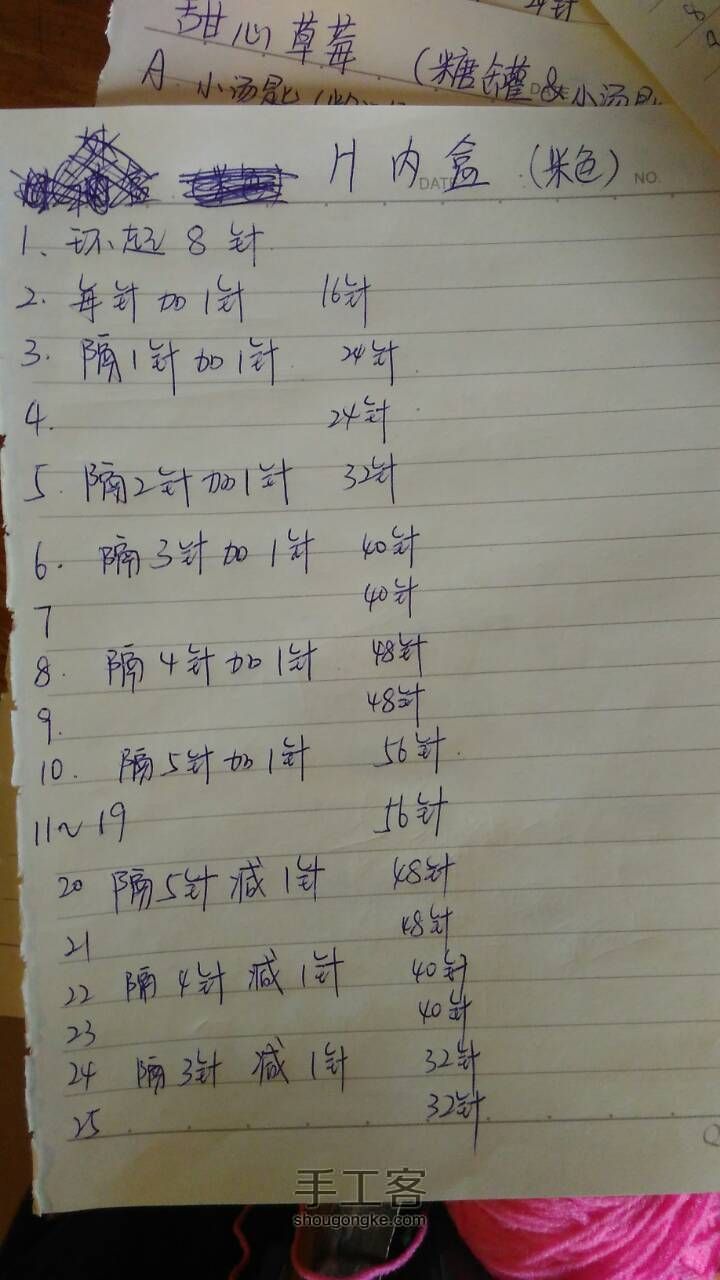 24针
甜心草莓 (糖罐&小汤匙
A 小汤匙
H 内盒 (米色)
DATE NO.
1. 环起 8 针
2. 每针加1针 16针
3. 隔1针加1针 24针
4. 24针
5. 隔2针加1针 32针
6. 隔3针加1针 40针
7 40针
8. 隔4针加1针 48针
9. 48针
10. 隔5针加1针 56针
11~19 56针
20 隔5针减1针 48针
21 48针
22 隔4针减1针 40针
23 40针
24 隔3针减1针 32针
25 32针
手工客
shougongke.com